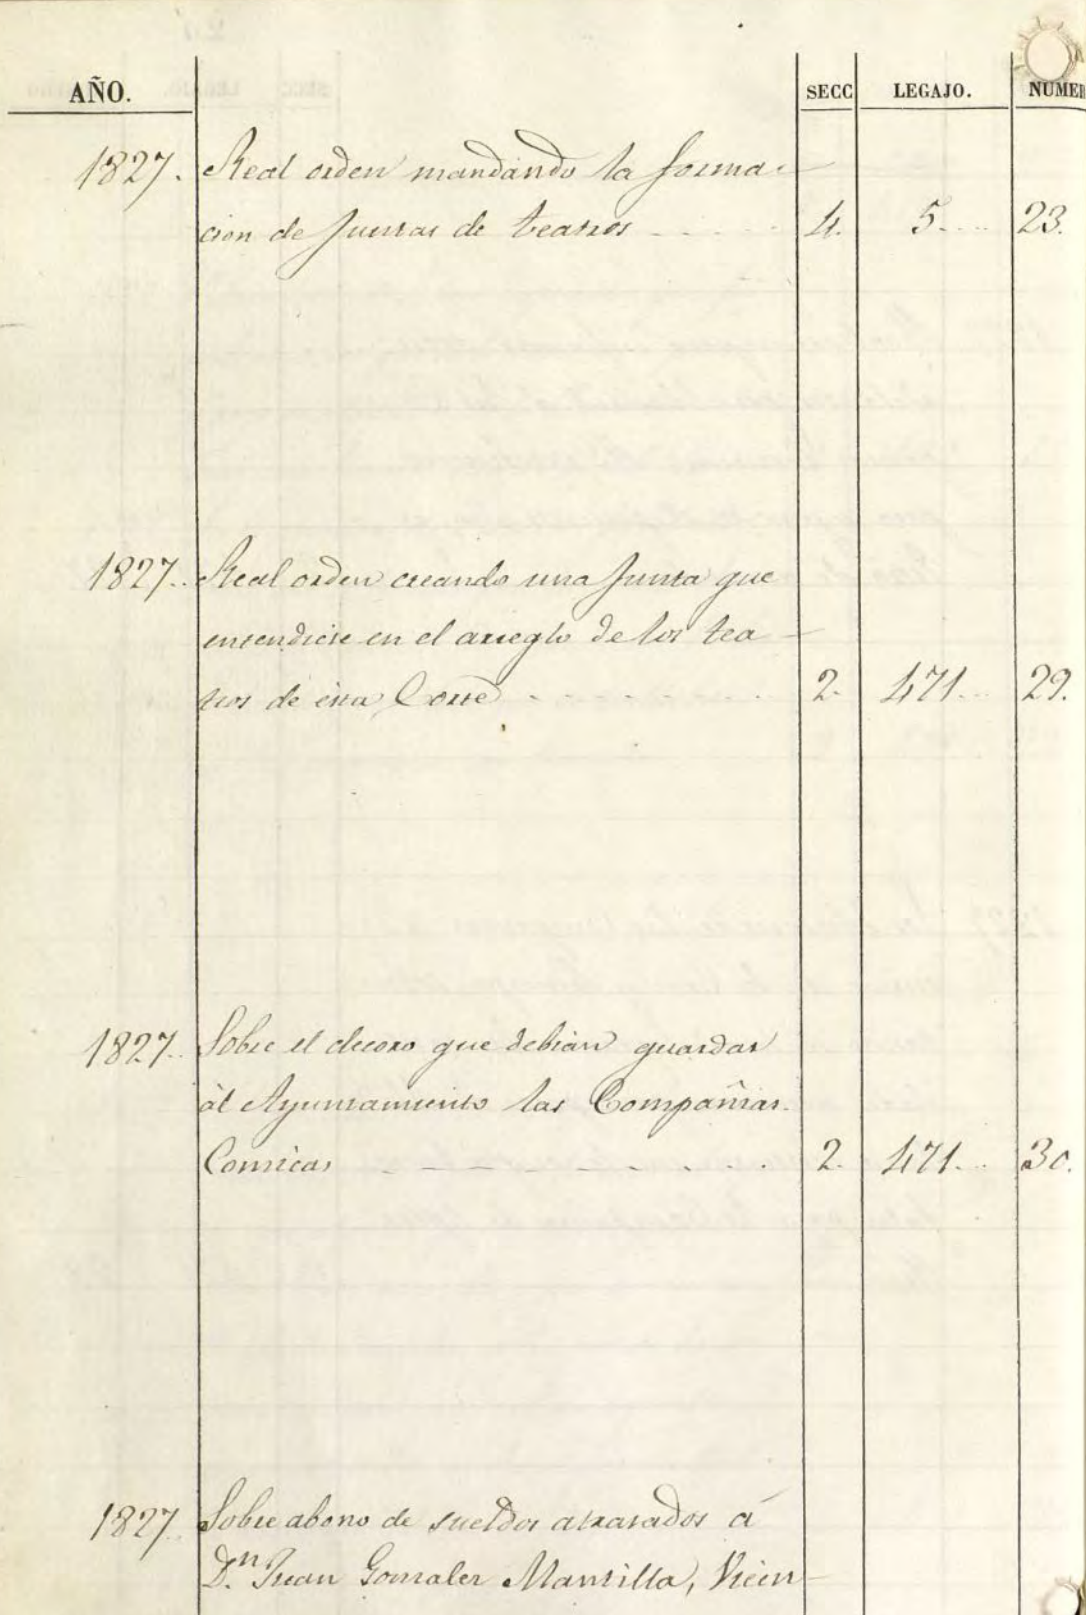 AÑO. SECC LEGAJO. NUMER
1827. Real orden mandando la forma-
cion de Juntas de teatros - - - - - 4. 5.... 23.
1827.. Real orden creando una Junta que
entendiese en el arreglo de los tea-
tros de ésta Corte - - - - - - - 2. 471... 29.
1827.. Sobre el decoro que debian guardar
àl Ayuntamiento las Compañias
Comicas - - - - - - - - - - 2. 471... 30.
1827.. Sobre abono de sueldos atrasados á
D.n Juan Gonzalez Mantilla, Vicen-